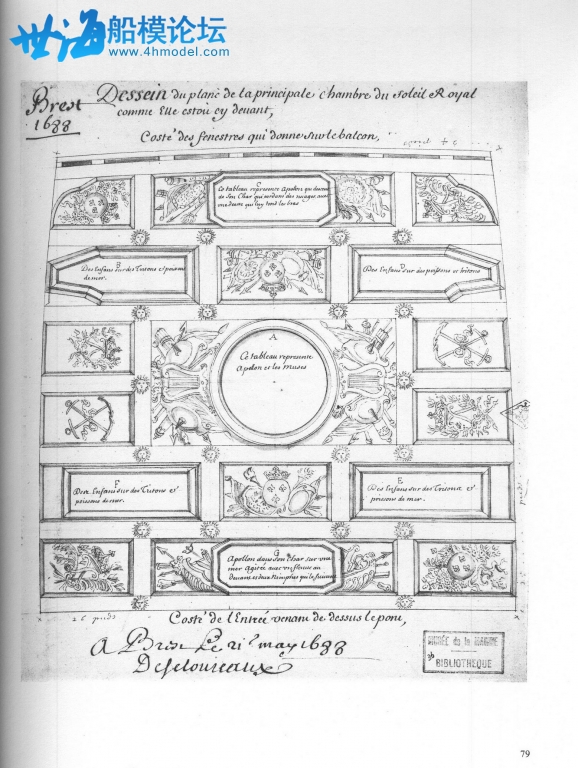 世海 船模论坛
www.4hmodel.com
Brest
1688
Dessein du planc de la principale chambre du soleil Royal
comme Elle estoit cy devant,
Costé des fenestres qui donne sur le balcon,
C
Ce tableau represente Apolon qui
de Son Char qui
B
Des Enfans sur des Tritons et poissons
de mer.
D
Des Enfans sur des poissons et tritons
de mer.
A
Ce tableau represente
Apolon et les muses
F
Des Enfans sur des Tritons et
poissons de mer.
E
Des Enfans sur des Tritons et
poisons de mer.
G
Apollon dans Son Char sur une
mer Agitée avec un fleuve au
Devant et deux Nimphes qui le suivent
26 pieds
Costé de l'Entrée venant de dessus le pont,
A Brest Le 21e may 1688
Desclouzeaux
MUSÉE de la MARINE
BIBLIOTHEQUE
79